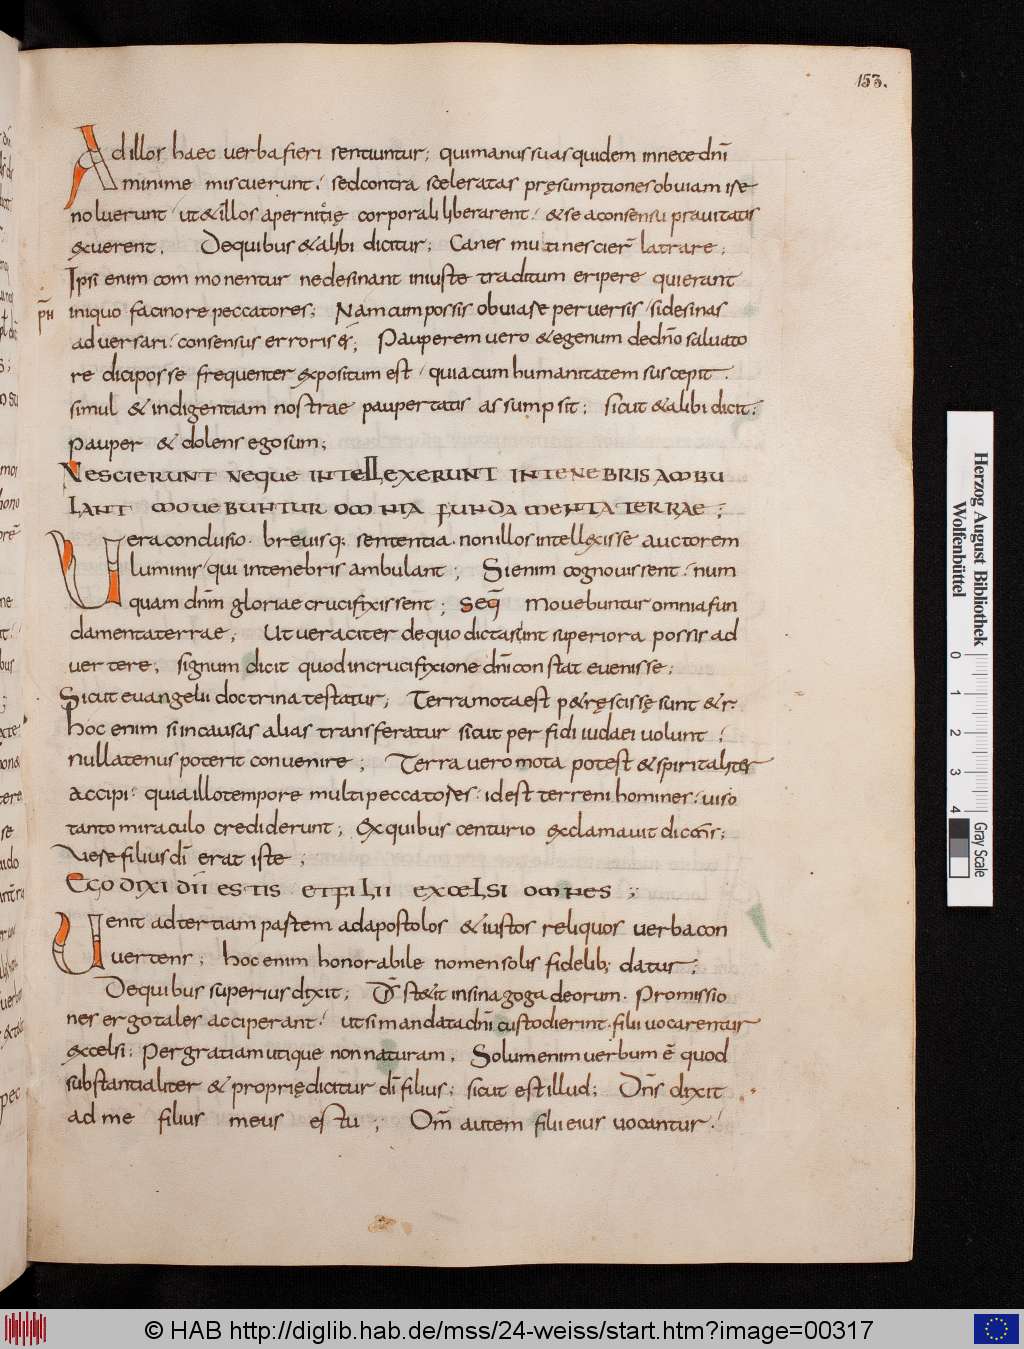 153.
Ad illos haec uerba fieri sentiuntur; qui manus suas quidem in nece dnī
minime miscuerunt; sed contra sceleratas pręsumptiones obuiam ire
noluerunt ut & illos a pernitię corporali liberarent & se a consensu prauitatis
exuerent. De quibus & alibi dicitur; Canes muti nescier latrare;
Ipsi enim commonentur ne desinant iniuste traditum eripere qui erant
iniquo facinore peccatores; Nam cum possis obuiare peruersis si desinas
aduersari consensus erroris ē; Pauperem uero & egenum de dnō saluato
re dici posse frequenter expositum est quia cum humanitatem suscepit.
simul & indigentiam nostrae paupertatis assumpsit; sicut & alibi dicit;
pauper & dolens ego sum;
NESCIERUNT NEQUE INTELLEXERUNT IN TENEBRIS AMBU
LANT MOUEBUNTUR OMNIA FUNDAMENTA TERRAE;
Uera conclusio. breuisq; sententia. non illos intellexisse auctorem
luminis qui in tenebris ambulant; Si enim cognouissent num
quam dnm̄ gloriae crucifixissent; Seq̄ Mouebuntur omnia fun
damenta terrae; Ut ueraciter de quo dicta sunt superiora possis ad
uertere; signum dicit quod in crucifixione dnī constat euenisse;
Sicut euangelii doctrina testatur; Terra mota est p&rę scissę sunt & r.
hoc enim si in causas alias transferatur sicut perfidi iudaei uolunt;
nullatenus poterit conuenire; Terra uero mota potest & spiritaliter
accipi quia illo tempore multi peccatores id est terreni homines uiso
tanto miraculo crediderunt; Ex quibus centurio exclamauit dicens;
Uere filius dī erat iste;
EGO DIXI DII ESTIS ET FILII EXCELSI OMNES;
Uenit ad tertiam partem ad apostolos & iustos reliquos uerba con
uertens; hoc enim honorabile nomen solis fidelib; datur;
De quibus superius dixit; Ds̄ stetit in sinagoga deorum. Promissio
nes ergo tales acciperant ut si mandata dnī custodierint. filii uocarentur
excelsi; Per gratiam utique non naturam. Solum enim uerbum ē quod
substantialiter & proprię dicitur dī filius; sicut est illud; Dns̄ dixit
ad me filius meus es tu; Om̄ autem filii eius uocantur
Herzog August Bibliothek
Wolfenbüttel
0 1 2 3 4
Gray Scale
© HAB http://diglib.hab.de/mss/24-weiss/start.htm?image=00317